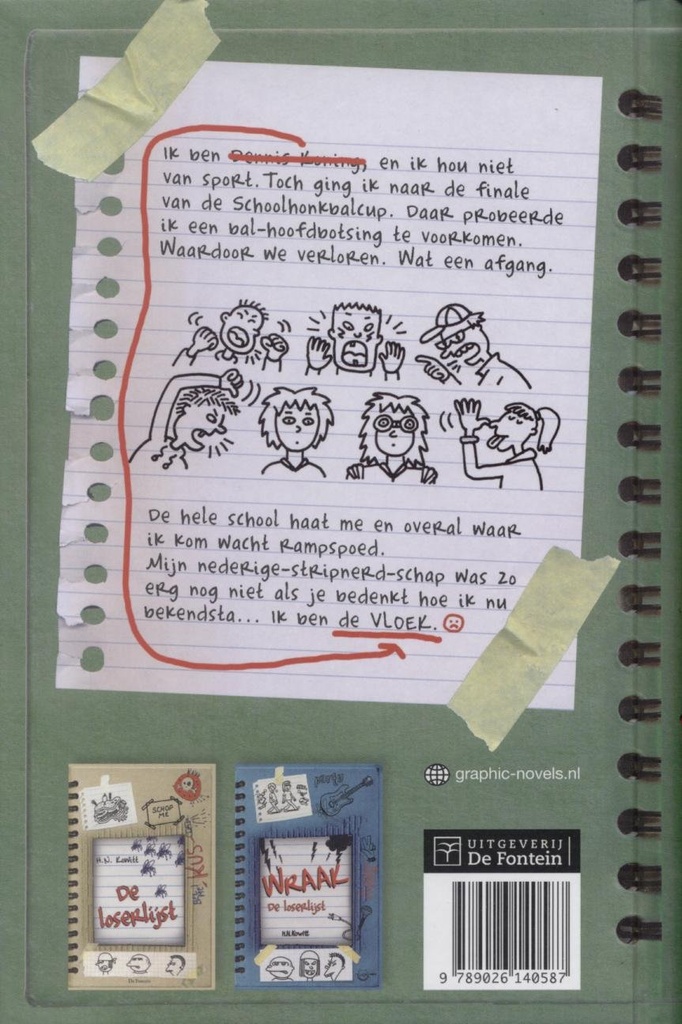 Ik ben Dennis Koning, en ik hou niet
van sport. Toch ging ik naar de finale
van de Schoolhonkbalcup. Daar probeerde
ik een bal-hoofdbotsing te voorkomen.
Waardoor we verloren. Wat een afgang.
De hele school haat me en overal waar
ik kom wacht rampspoed.
Mijn nederige-stripnerd-schap was zo
erg nog niet als je bedenkt hoe ik nu
bekendsta... Ik ben de VLOEK.
SCHOP
ME
H.N. Kowitt
De
loserlijst
KUS
De Fontein
WRAAK
De loserlijst
H.N. Kowitt
graphic-novels.nl
UITGEVERIJ
De Fontein
9 789026 140587